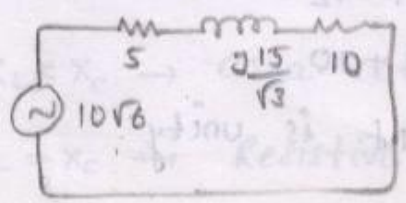 5 j 15/√3 10
10√6